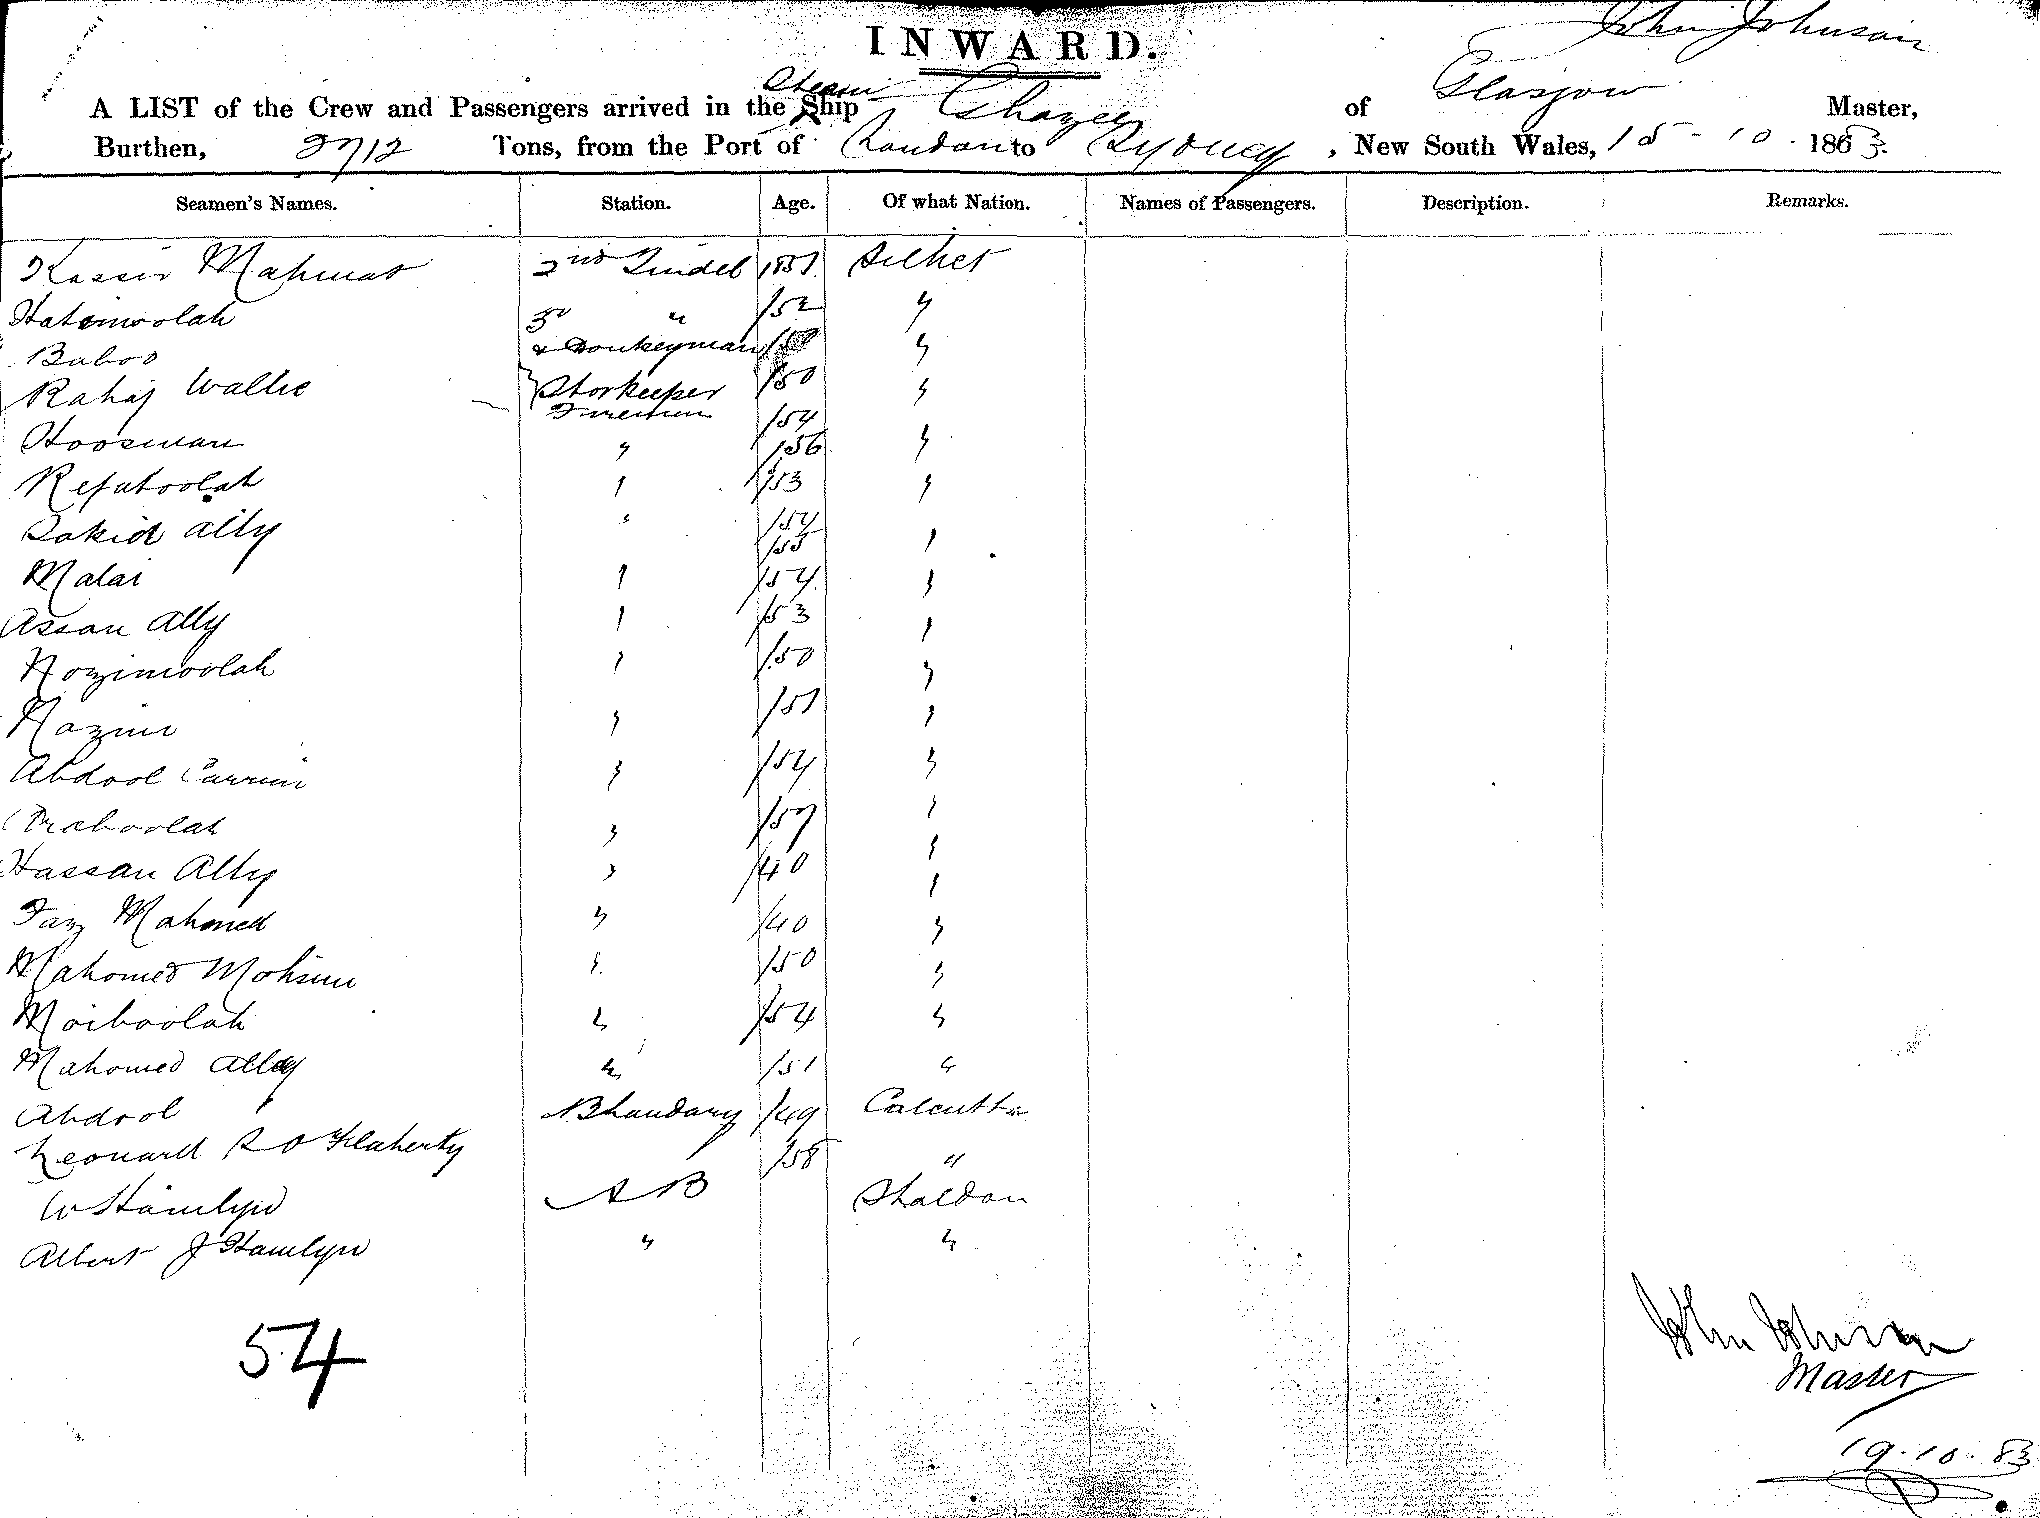 John Johnson
INWARD.
A LIST of the Crew and Passengers arrived in the Steam Ship Ghazee of Glasgow Master,
Burthen, 2712 Tons, from the Port of London to Sydney, New South Wales, 15-10. 1883.
Seamen's Names. Station. Age. Of what Nation. Names of Passengers. Description. Remarks.
Kassir Mahmat 2nd Tindel 1851 Silhet
Hatimoolah 3d " /52 "
Baboo & Donkeyman "
Rahaj Wallie Storkeeper /50 "
Firemen /54
Hoosman " /56 "
Refatoolah " /53 "
Sakid Ally " /54 "
/55
Malai " /54 "
Assan Ally " /53 "
Nozimoolah " /50 "
Nazim " /51 "
Abdool Carrim " /54 "
/57 "
Hassan Ally " /40 "
Faz Mahmed " /40 "
Mahomed Mohsim " /50 "
Moiboolah " /54 "
Mahomed Ally " /51 "
Abdool Bhandary /49 Calcutta
Leonard S O'Flaherty /58 "
W Hamlyn AB Shaldon
Albert J Hamlyn " "
54
John Johnson
Master
19.10.83